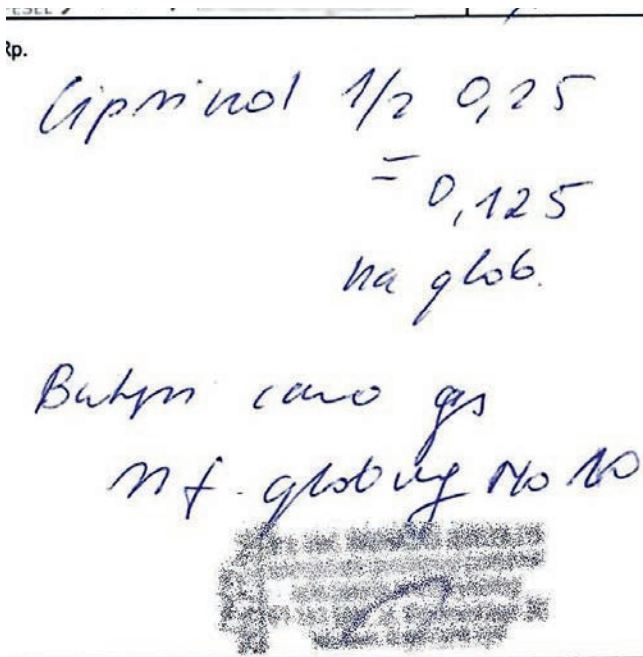 Rp.
Ciprinol 1/2 0,25
= 0,125
na glob.
Butyri cacao qs
M f. globulg No 10